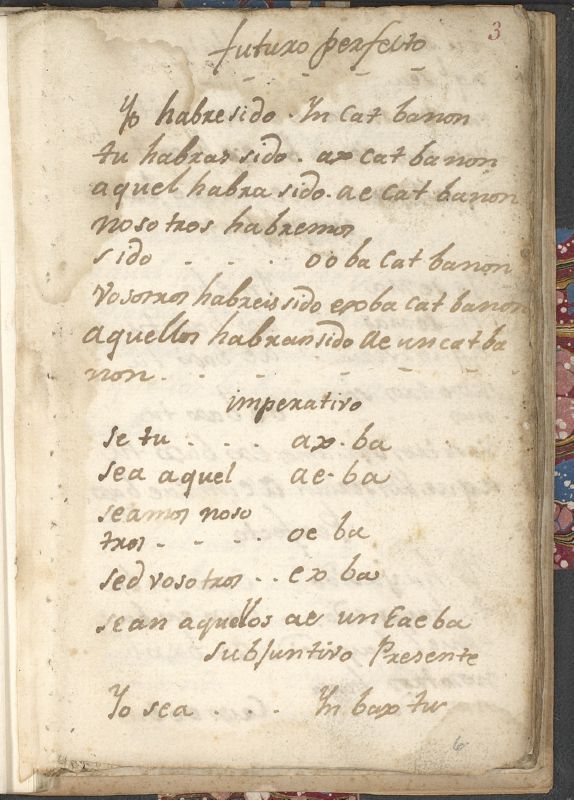 3
futuro perfecto
Yo habre sido . Yn cat banon
tu habras sido . ax cat banon
aquel habra sido . ae cat banon
nosotros habremos
sido - - - - oo ba cat banon
vosotros habreis sido exba cat banon
aquellos habran sido ae uncatba
non . - - - - -
imperativo
se tu - - - ax . ba
sea aquel ae - ba
seamos noso
tros - - - - - oe ba
sed vosotros . . ex ba
sean aquellos ae un Eaeba
subjuntivo Presente
Yo sea - . Yn bax tu
6